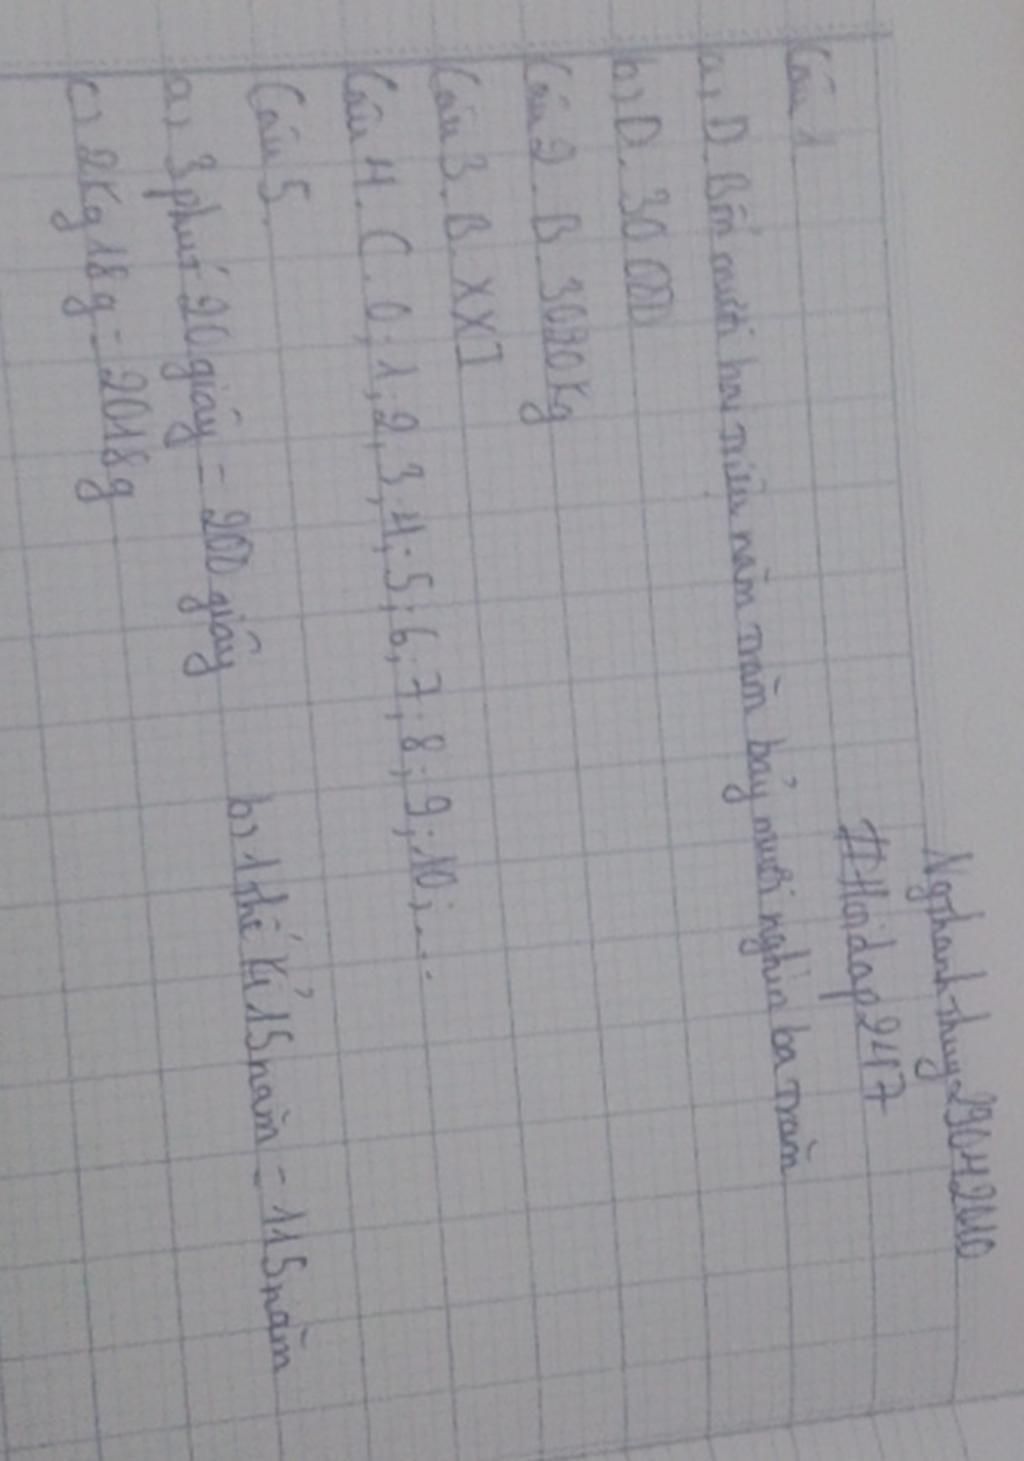 Ngthanhthuy29042010
#Hoidap247
Câu 1
a, D. Bốn mươi hai triệu năm trăm bảy mươi nghìn ba trăm
b, D. 30 000
Câu 2. B. 3020kg
Câu 3. B. XXI
Câu 4. C. 0; 1; 2; 3; 4; 5; 6; 7; 8; 9; 10; ...
Câu 5.
a, 3 phút 20 giây = 200 giây b, 1 thế kỉ 15 năm = 115 năm
c, 2kg 18g = 2018g